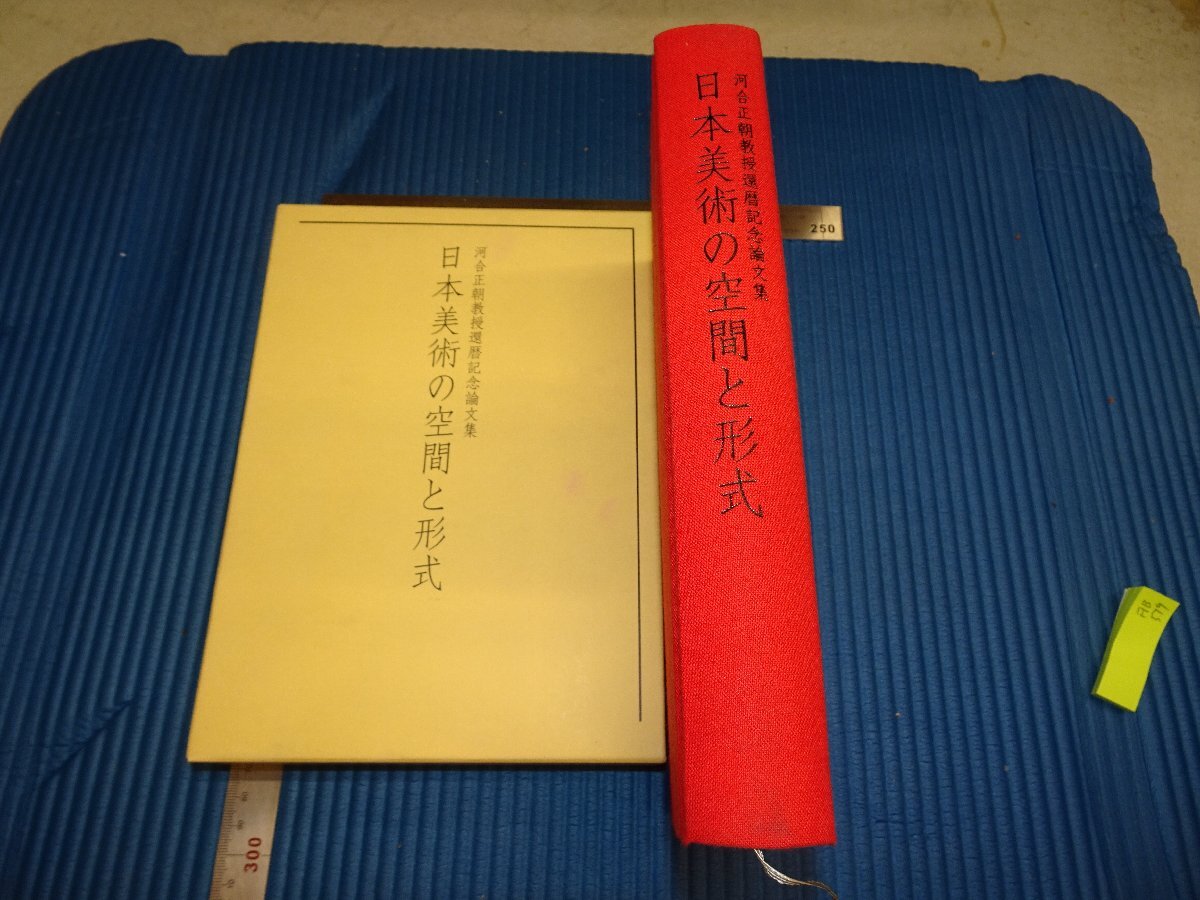 河合正朝教授還暦記念論文集
日本美術の空間と形式
河合正朝教授還暦記念論文集
日本美術の空間と形式
250
300